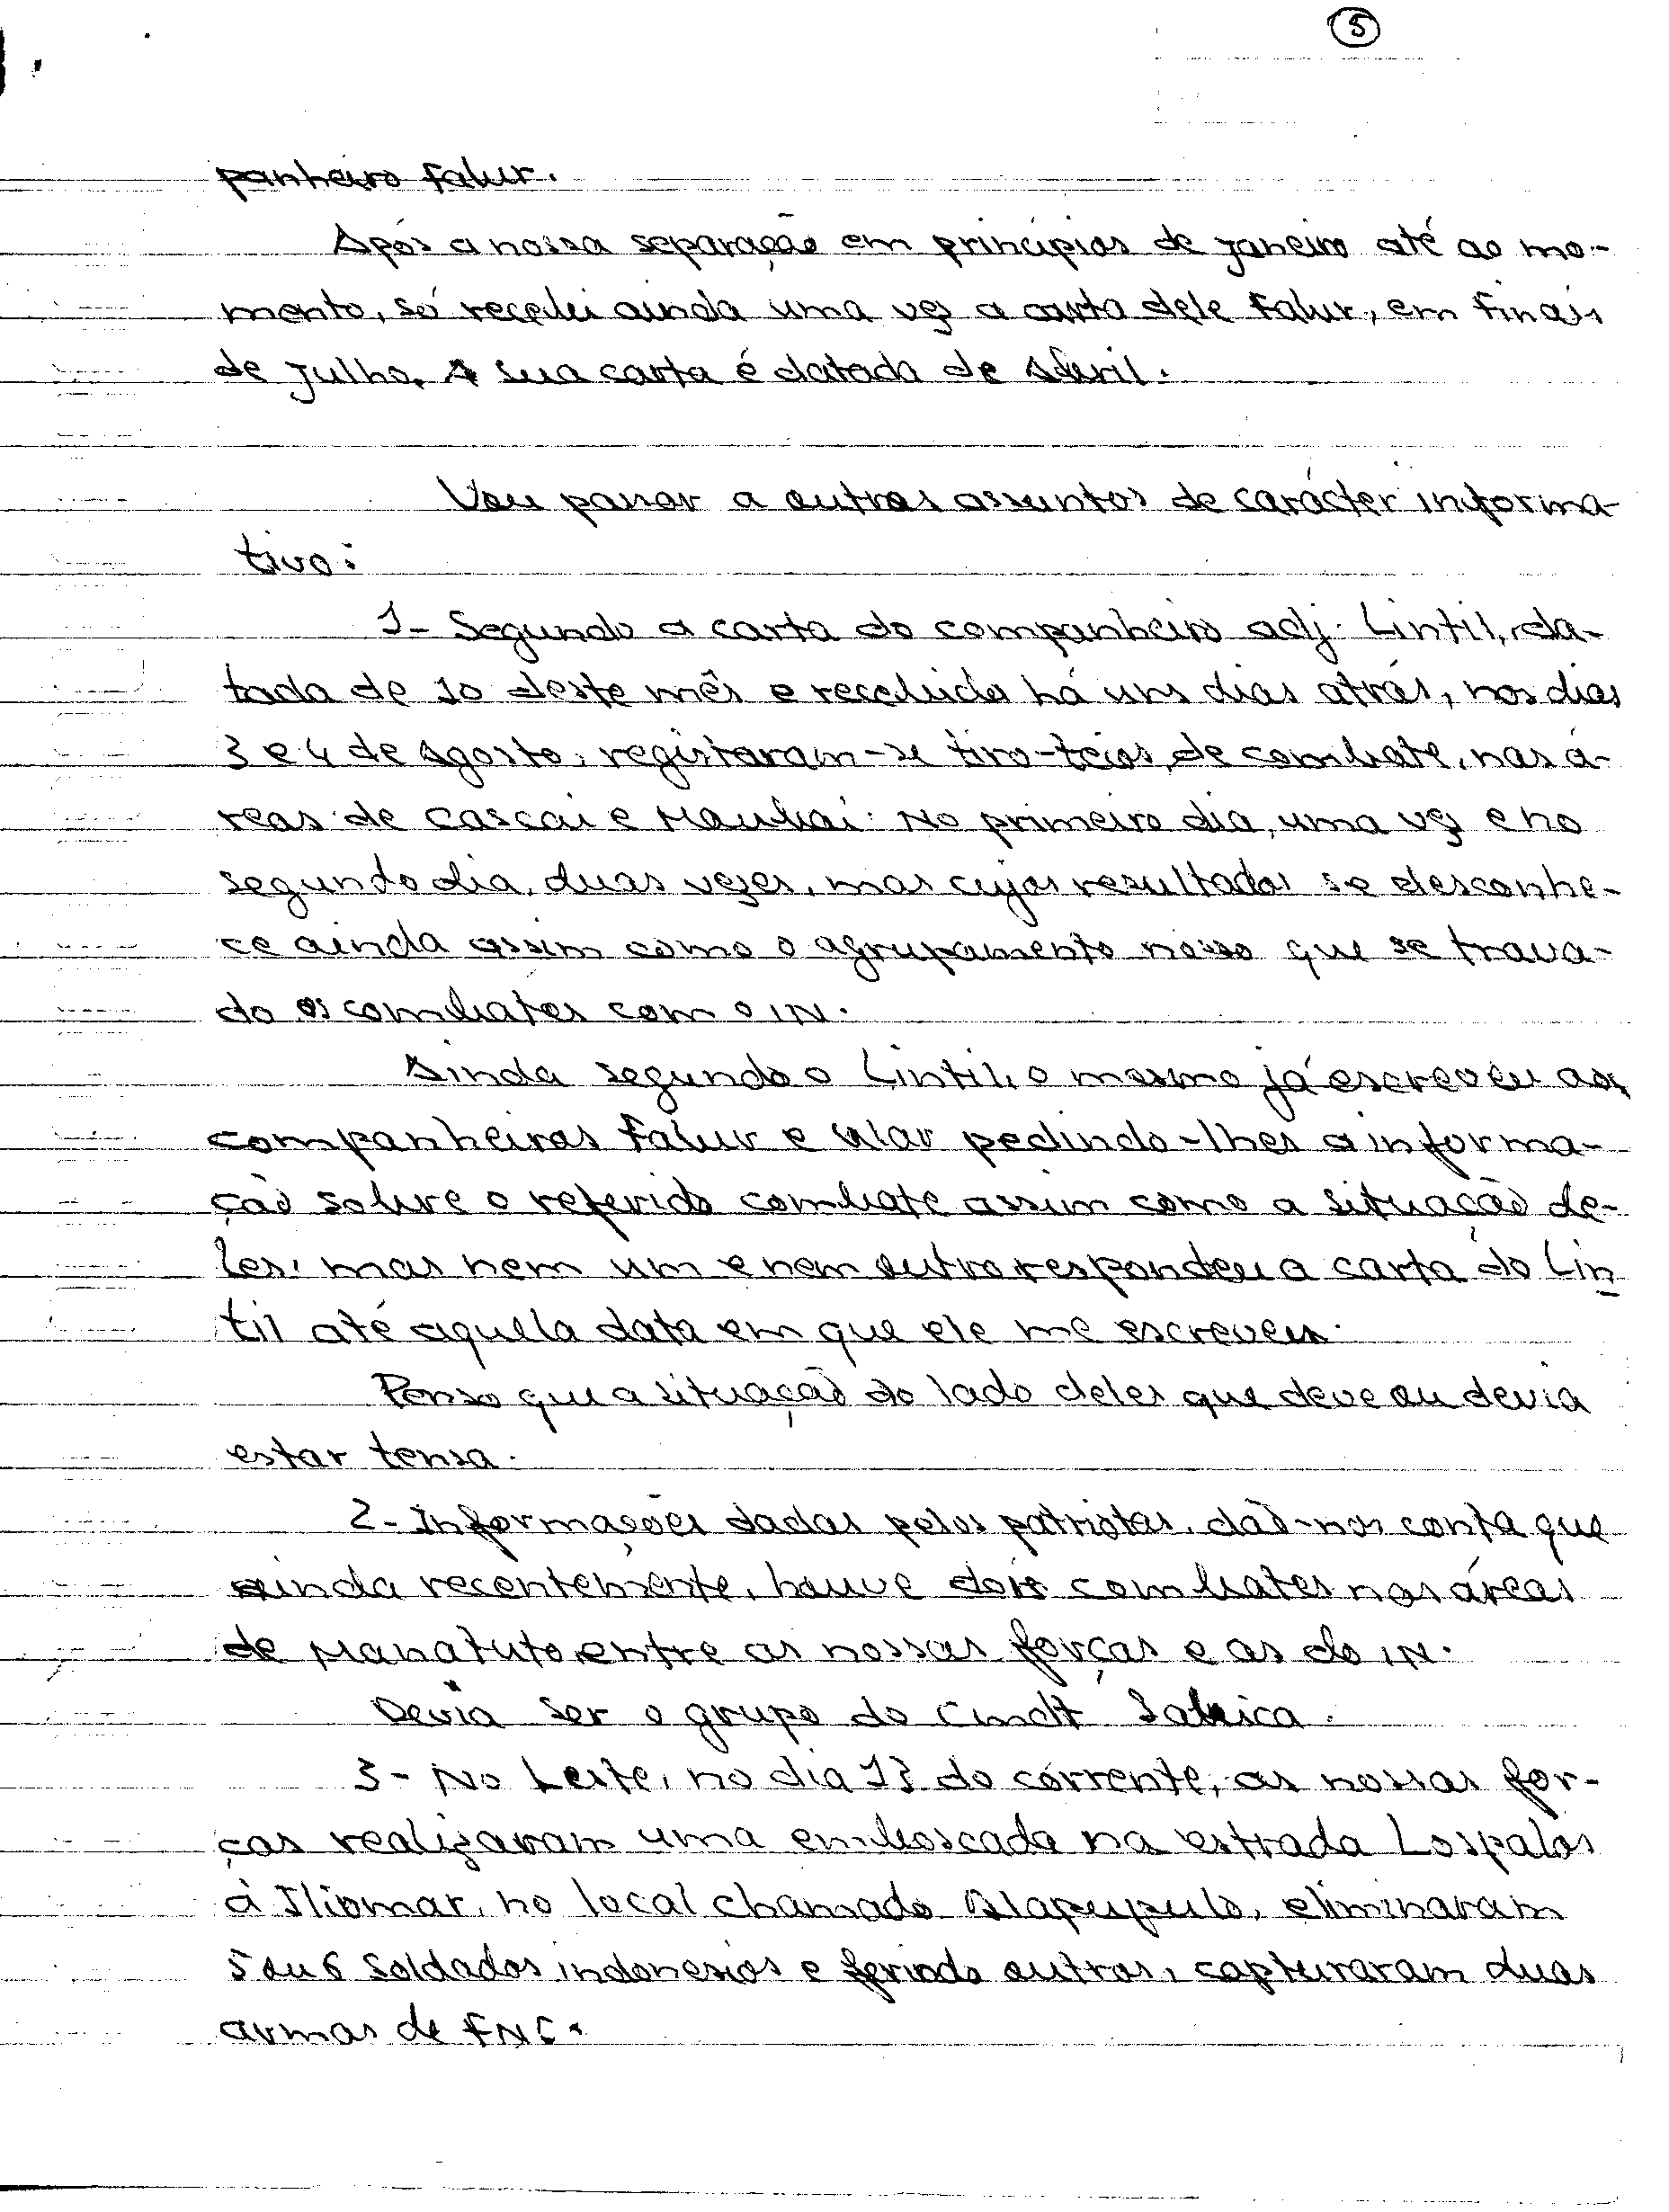 5
panheiro Falur.
Após a nossa separação em princípios de Janeiro até ao mo-
mento, só recebi ainda uma vez a carta dele Falur, em finais
de Julho. A sua carta é datada de Abril.
Vou passar a outros assuntos de carácter informa-
tivo:
1- Segundo a carta do companheiro adj. Lintil, da-
tada de 10 deste mês e recebida há uns dias atrás, nos dias
3 e 4 de Agosto, registaram-se tiro-teios de combate, nas á-
reas de Cascai e Maubai. No primeiro dia, uma vez e no
segundo dia, duas vezes, mas cujos resultados se desconhe-
ce ainda assim como o agrupamento nosso que se trava-
do os combates com o IN.
Ainda segundo o Lintil, o mesmo já escreveu aos
companheiros Falur e Ular pedindo-lhes a informa-
ção sobre o referido combate assim como a situação de-
les, mas nem um e nem outro respondeu a carta do Lin
til até aquella data em que ele me escreveu.
Penso que a situação do lado deles que deve ou devia
estar tensa.
2- Informações dadas pelos patriotas, dão-nos conta que
ainda recentemente, houve dois combates nas áreas
de Manatuto, entre as nossas forças e as do IN.
Devia ser o grupo do Cmdt Sabica.
3- No Leste, no dia 13 do corrente, as nossas for-
ças realizaram uma emboscada na estrada Lospalos
à Iliomar, no local chamado Alapupulo, eliminaram
5 ou 6 soldados indonésios e ferindo outros, capturaram duas
armas de FNC.